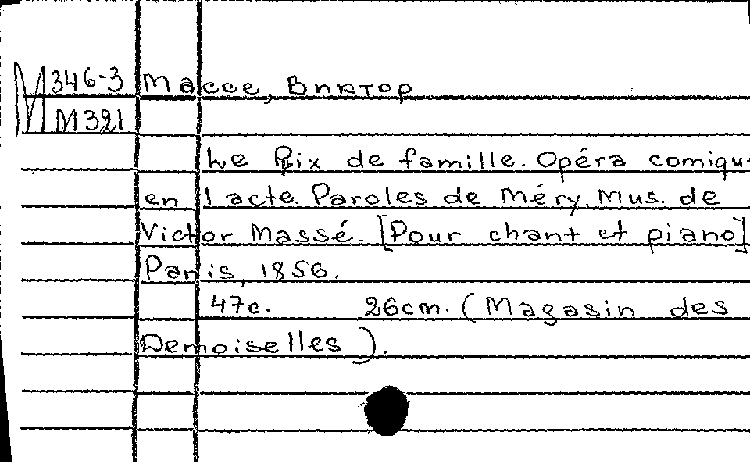 М 346-3 Массе, Виктор
М321
Le Prix de famille. Opéra comiqu
en 1 acte. Paroles de Méry. Mus. de
Victor Massé. [Pour chant et piano]
Paris, 1856.
47с. 26cm. (Magasin des
Demoiselles).